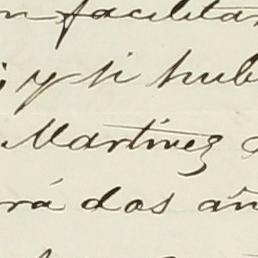 n facilitar
y si hub
Martinez
rá dos añ